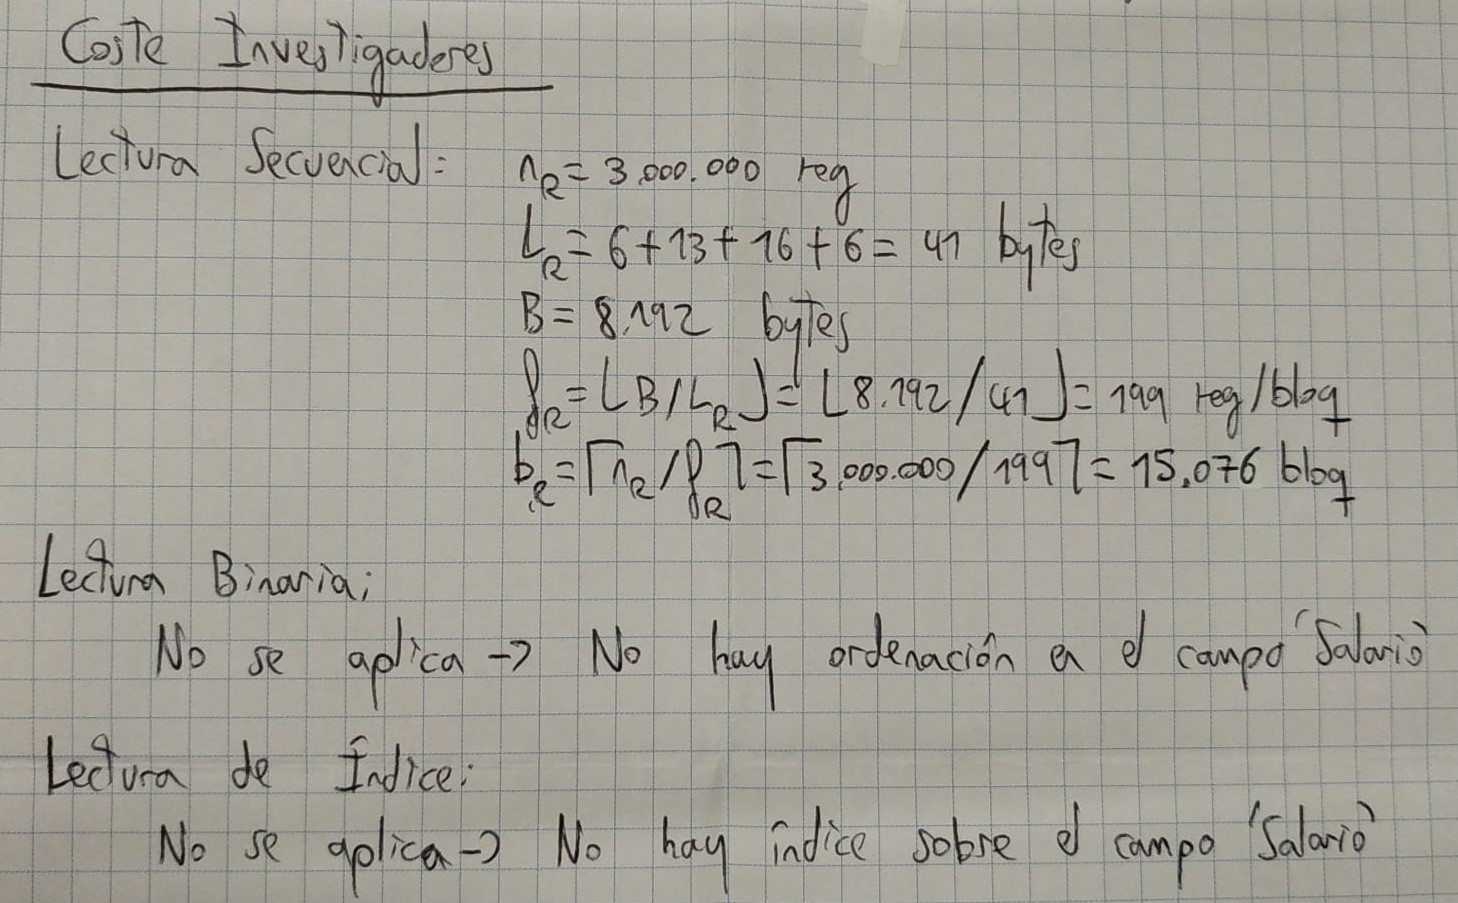 Coste Investigadores
Lectura Secuencial: nR = 3.000.000 reg
LR = 6 + 13 + 16 + 6 = 41 bytes
B = 8.192 bytes
fR = ⌊B/LR⌋ = ⌊8.192/41⌋ = 199 reg/bloq
bR = ⌈nR/fR⌉ = ⌈3.000.000/199⌉ = 15.076 bloq
Lectura Binaria:
No se aplica -> No hay ordenación en el campo 'Salario'
Lectura de Índice:
No se aplica -> No hay índice sobre el campo 'Salario'